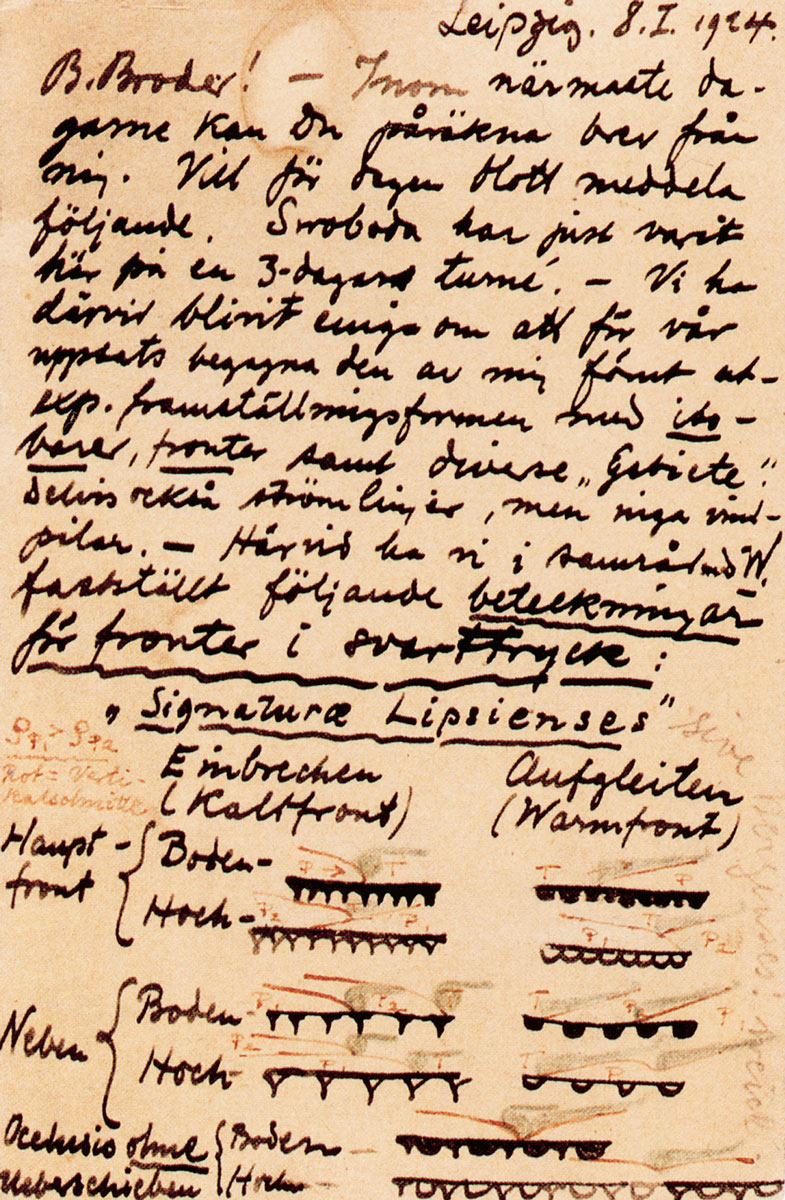 Leipzig. 8.I. 1924.
B. Broder! — Inom närmaste da-
garne kan Du påräkna brev från
mig. Vill för dagen blott meddela
följande. Swoboda har just varit
här på en 3-dagars turné. — Vi ha
därvid blivit eniga om att för vår
uppsats begagna den av mig förut ut-
exp. framställningsformen med iso-
barer, fronter samt diverse „Gebiete".
Delvis också strömlinjer, men inga vind-
pilar. — Härvid ha vi i samråd med W.
fastställt följande beteckningar
för fronter i svarttryck:
„Signaturæ Lipsienses" sive
Rot = Verti-
kalschnitte
Einbrechen Aufgleiten
(Kaltfront) (Warmfront)
Haupt-
front
Boden-
P T T P
Hoch-
P2 P1 P1 T P2
Neben
Boden-
P1 P2 T T P
Hoch-
P2 P1 T T P
Occlusio ohne
Ueberschieben
Boden —
Hoch —